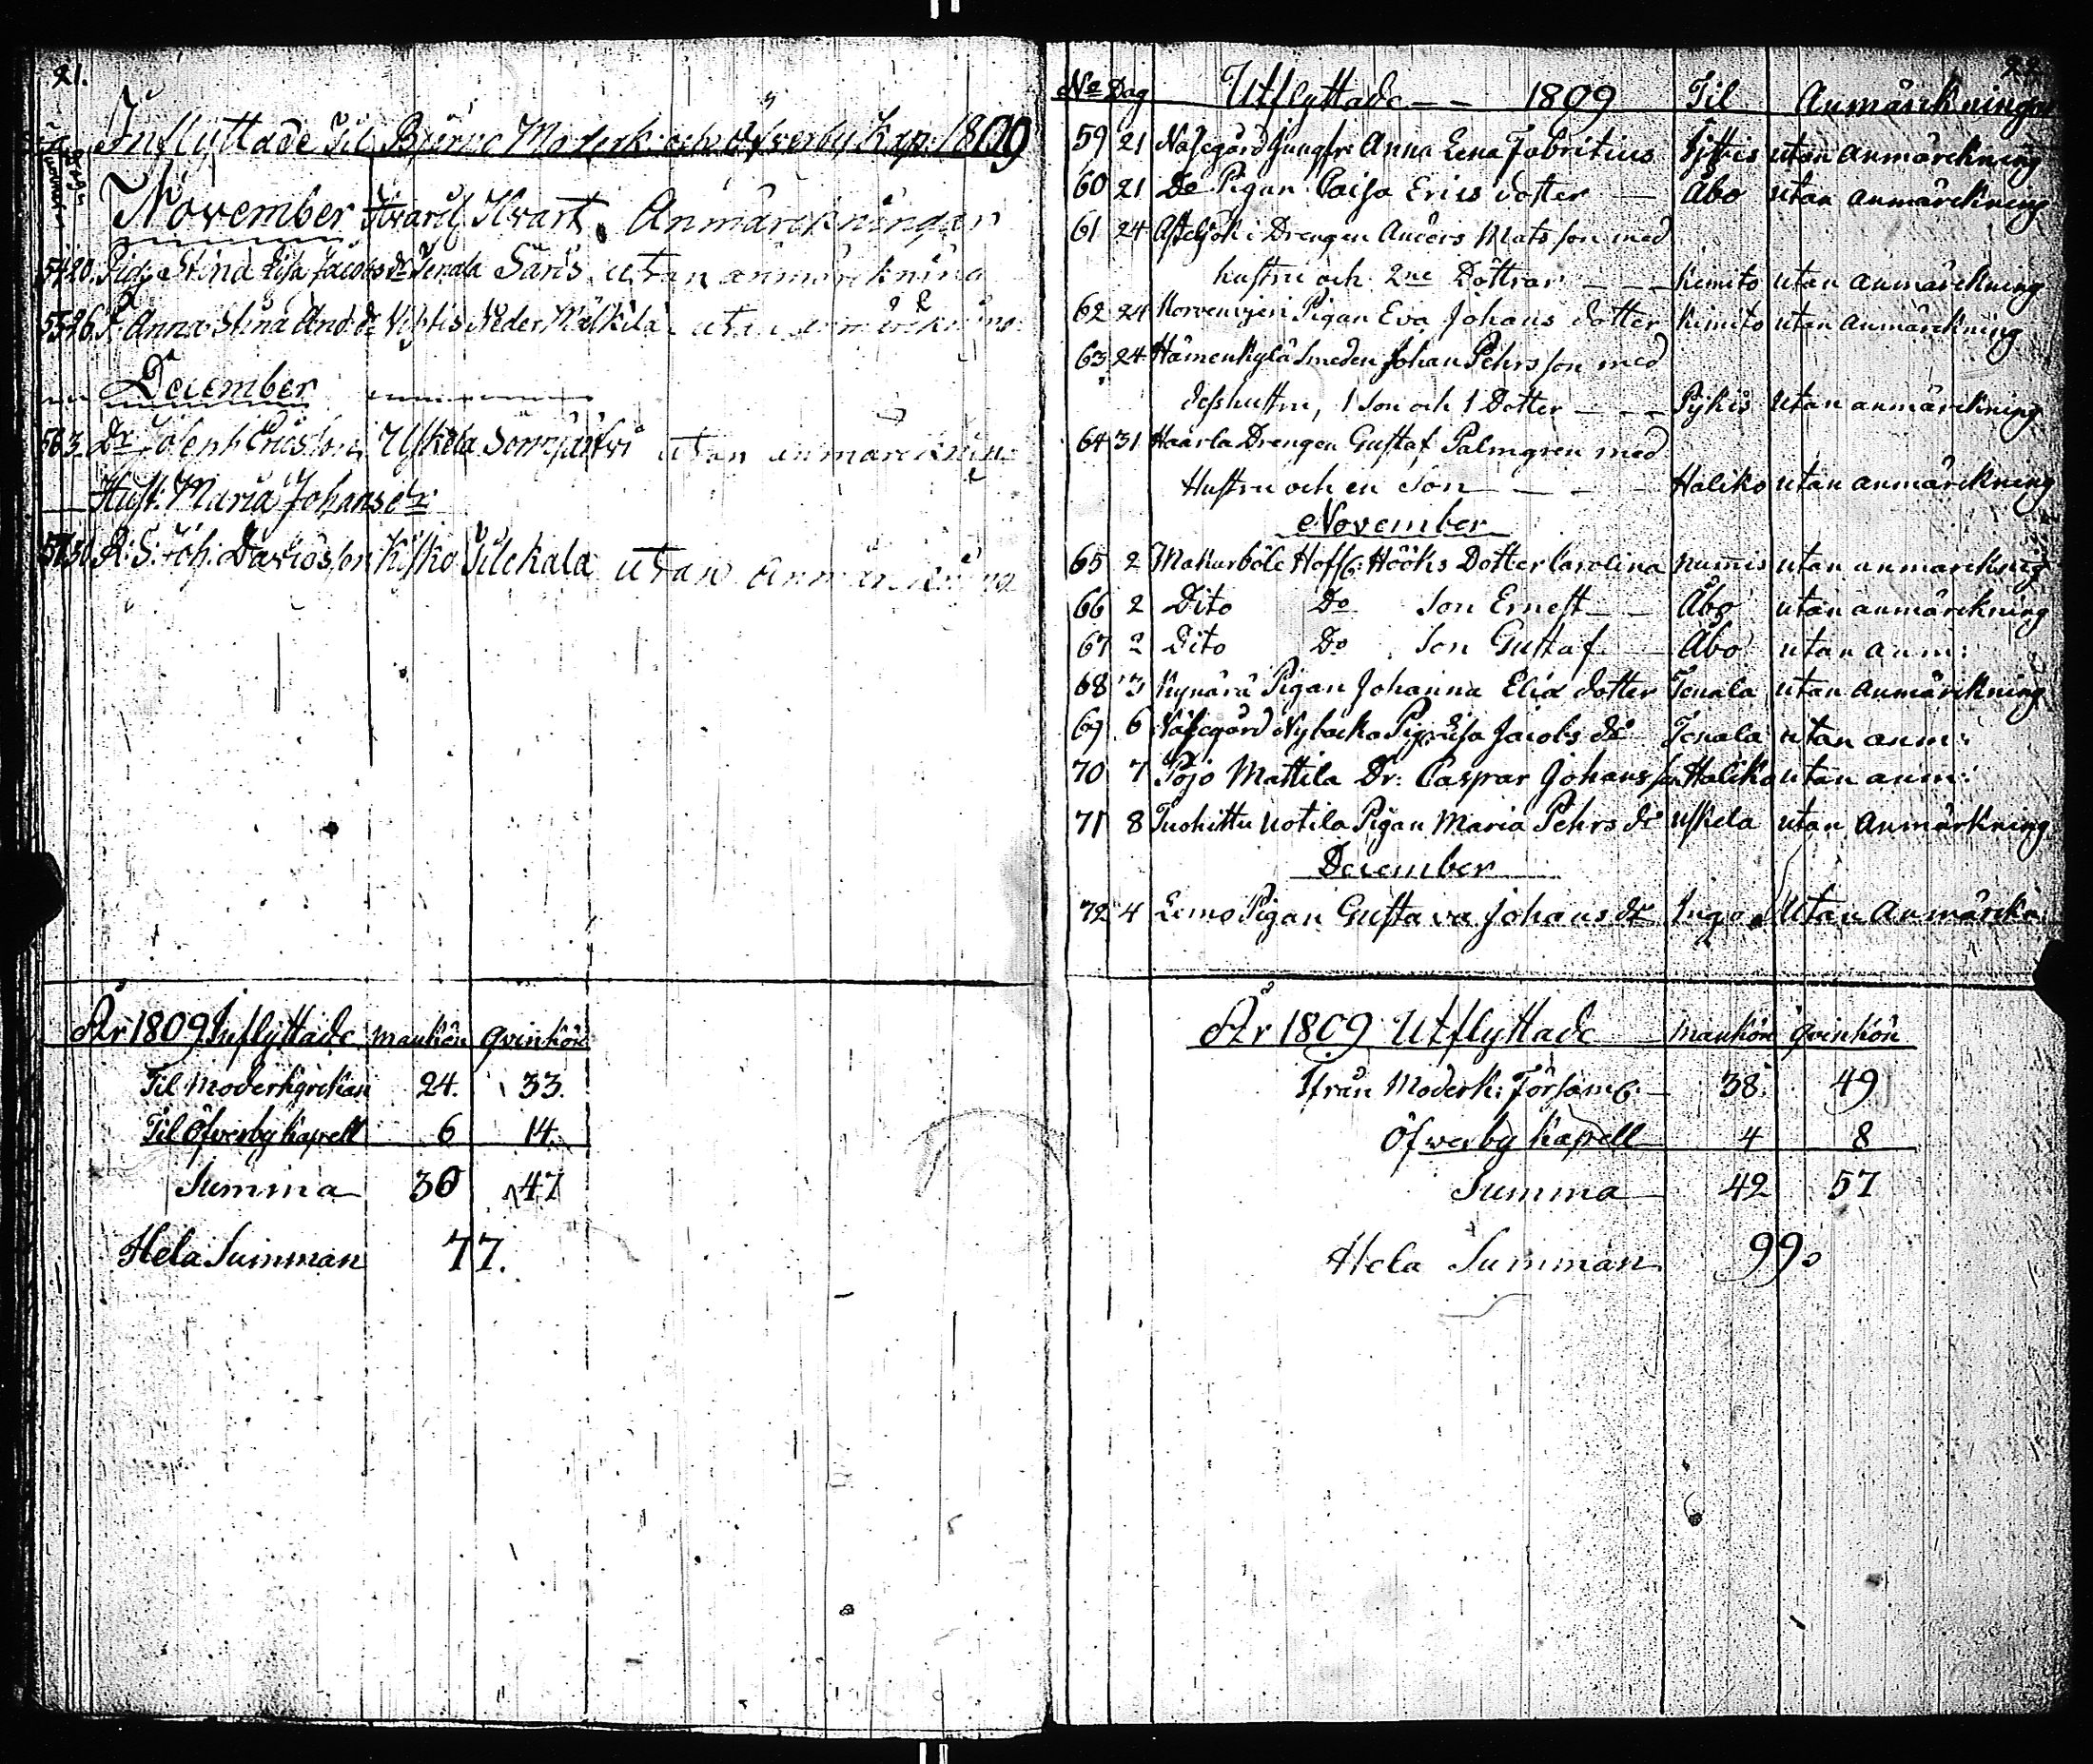 21.
Inflyttade Til Bjerno Moderk: och Öfverby Kap: 1809
November Hvarif. Hvart. Anmärckningar
54 20. Pig. Stina Lisa Jacobs dr Tenala Säris utan anmärckning
55 26. P. Anna Stina And: dr Vihtis Neder Mälkilä utan anmärckning
December
56 3. Dr Joseph Ericsson Uskela utan anmärckning
Hust: Maria Johans dr
57 30. R: S: Joh: Davidsson Kisko Tilckala utan anmärckning
År 1809 Inflyttade mankön qvinkön
Til Moderkyrckan 24. 33.
Til Öfverby Kapell 6 14.
Summa 30 47
Hela Summan 77.
22
No Dag Utflyttade - - 1809 Til Anmärckningar
59 21 Näsegård Jungfr: Anna Lena Fabritius Pyttis utan anmärckning
60 21 Do Pigan Caisa Erics dotter — Åbo utan anmärckning
61 24 Asteljoki Drengen Anders Mats son med
hustru och 2ne Döttrar - - - Kimito utan anmärckning
62 24 Pigan Eva Johans dotter Kimito utan anmärckning
63 24 Hämenkylä Smeden Johan Pehrs son med
dess hustru, 1 son och 1 Dotter - - - Pijkis utan anmärckning
64 31 Haarla Drengen Gustaf Palmgren med
Hustru och en Son - - - Haliko utan anmärckning
November
65 2 Makarböle Hööks Dotter Carolina Nummis utan anmärckning
66 2 Dito Do Son Ernest - - Åbo utan anmärckning
67 2 Dito Do Son Gustaf - Åbo utan anm:
68 3 Kynärä Pigan Johanna Eliæ dotter Tenala utan anmärckning
69 6 Näsegård Nybacka Pig: Lisa Jacobs dr Tenala utan anm:
70 7 Pojo Mattila Dr: Caspar Johans son Haliko utan anm:
71 8 Tuohittu Uotila Pigan Maria Pehrs dr Uskela utan Anmärkning
December
72 4 Lemo Pigan Gustava Johans dr Ingo Utan Anmärckn:
År 1809 Utflyttade mankön qvinkön
Ifrån Moderk: Församl: — 38. 49
Öfwerby Kapell 4 8
Summa 42 57
Hela Summan 99.